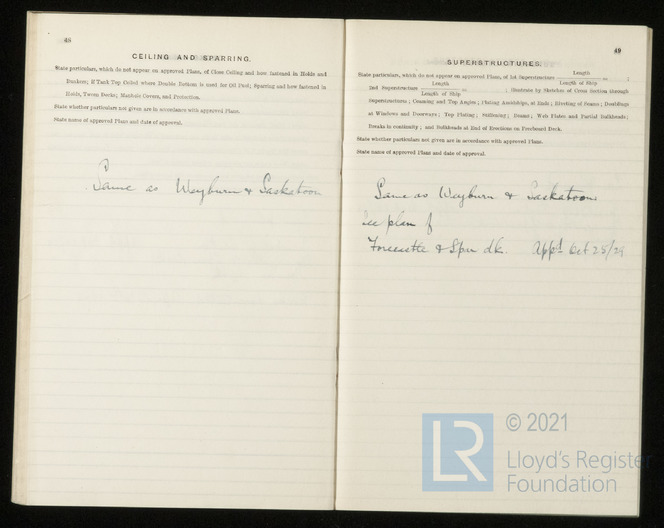 48
CEILING AND SPARRING.
State particulars, which do not appear on approved Plans, of Close Ceiling and how fastened in Holds and
Bunkers; if Tank Top Ceiled where Double Bottom is used for Oil Fuel; Sparring and how fastened in
Holds, Tween Decks; Manhole Covers, and Protection.
State whether particulars not given are in accordance with approved Plans.
State name of approved Plans and date of approval.
Same as Weyburn & Saskatoon
49
SUPERSTRUCTURES.
State particulars, which do not appear on approved Plans, of 1st Superstructure Length / Length of Ship = ;
2nd Superstructure Length / Length of Ship = ; (illustrate by Sketches of Cross Section through
Superstructures; Coaming and Top Angles; Plating Amidships, at Ends; Riveting of Beams; Doublings
at Windows and Doorways; Top Plating; Stiffening; Beams; Web Plates and Partial Bulkheads;
Breaks in continuity; and Bulkheads at End of Erections on Freeboard Deck.
State whether particulars not given are in accordance with approved Plans.
State name of approved Plans and date of approval.
Same as Weyburn & Saskatoon
See plan of
Forecastle & Spar dk. Appd Oct 25/29
LR
© 2021
Lloyd's Register
Foundation